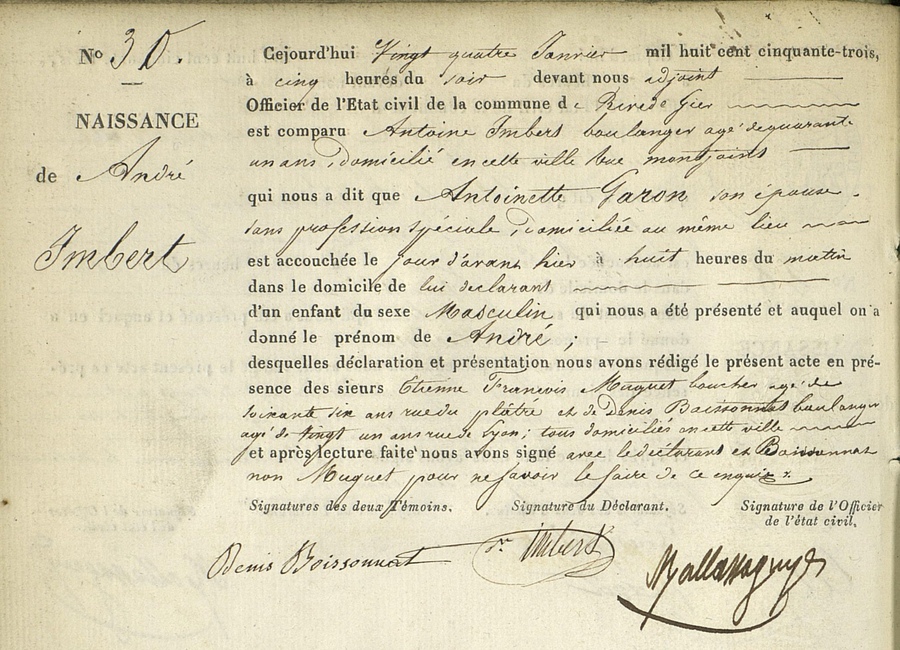 No 30.
NAISSANCE
de André
Imbert
Cejourd'hui Vingt quatre Janvier mil huit cent cinquante-trois,
à cinq heures du soir devant nous adjoint
Officier de l'Etat civil de la commune de Rive de Gier
est comparu Antoine Imbert boulanger agé de quarante
un ans, domicilié en cette ville rue montjoint
qui nous a dit que Antoinette Garon son épouse
sans profession spéciale, domiciliée au même lieu
est accouchée le jour d'avant hier à huit heures du matin
dans le domicile de lui declarant
d'un enfant du sexe Masculin qui nous a été présenté et auquel on a
donné le prénom de André ;
desquelles déclaration et présentation nous avons rédigé le présent acte en pré-
sence des sieurs Etienne François Muguet boucher agé de
soixante dix ans rue du plâtre et de Denis Boissonnat boulanger
agé de Vingt un ans rue de Lyon; tous domiciliés en cette ville
et après lecture faite nous avons signé avec le déclarant et Boissonnat
non Muguet pour ne savoir le faire de ce enquis.
Signatures des deux Témoins. Signature du Déclarant. Signature de l'Officier
de l'état civil,
Denis Boissonnat Imbert